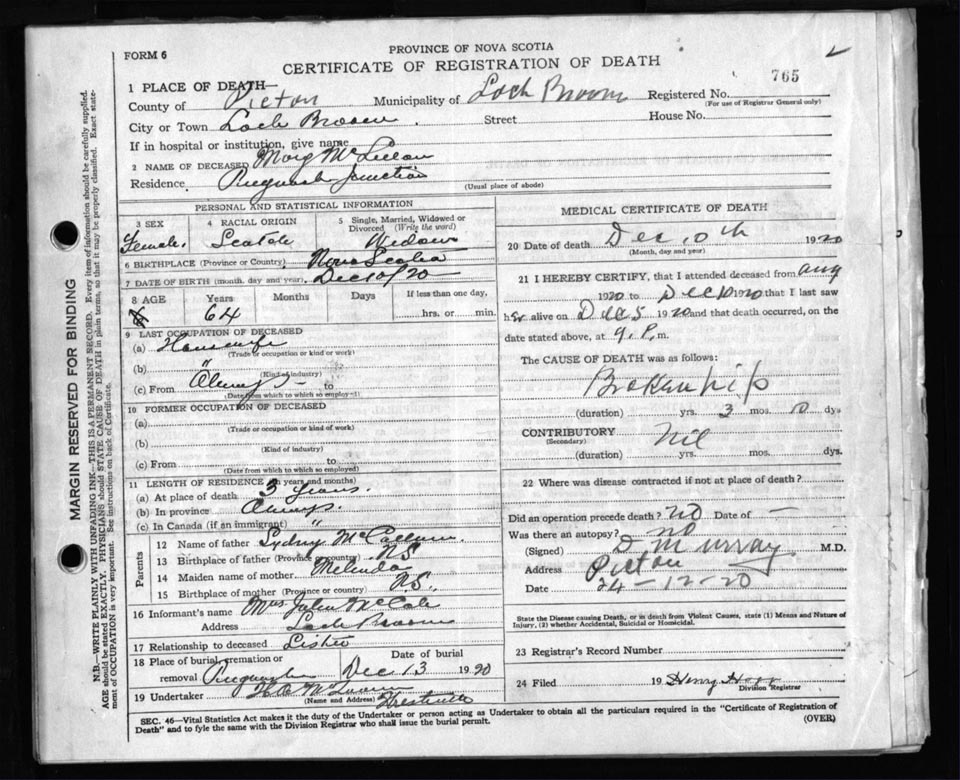 FORM 6
PROVINCE OF NOVA SCOTIA
CERTIFICATE OF REGISTRATION OF DEATH
765
1 PLACE OF DEATH—
County of Picton Municipality of Loch Broom Registered No.
(For use of Registrar General only)
City or Town Loch Broom Street House No.
If in hospital or institution, give name
2 NAME OF DECEASED Mary
Residence Pugwash Junction
(Usual place of abode)
PERSONAL AND STATISTICAL INFORMATION
3 SEX 4 RACIAL ORIGIN 5 Single, Married, Widowed or Divorced (Write the word)
Female Scotch Widow
6 BIRTHPLACE (Province or Country) Nova Scotia
7 DATE OF BIRTH (month, day and year) Dec 10/20
8 AGE Years Months Days If less than one day,
64 hrs. or min.
9 LAST OCCUPATION OF DECEASED
(a) Housewife
(Trade or occupation or kind or work)
(b) "
(Kind of industry)
(c) From Always to
(Date from which to which so employed)
10 FORMER OCCUPATION OF DECEASED
(a)
(Trade or occupation or kind of work)
(b)
(Kind of industry)
(c) From to
(Date from which to which so employed)
11 LENGTH OF RESIDENCE (in years and months)
(a) At place of death 3 years.
(b) In province Always.
(c) In Canada (if an immigrant) "
Parents
12 Name of father Sydney McCallum
13 Birthplace of father (Province or country) N.S.
14 Maiden name of mother Melinda
15 Birthplace of mother (Province or country) N.S.
16 Informant's name Mrs John McCole
Address Loch Broom
17 Relationship to deceased Sister
18 Place of burial, cremation or removal Pugwash Date of burial Dec 13 1920
19 Undertaker
(Name and Address)
MEDICAL CERTIFICATE OF DEATH
20 Date of death Dec 10th 1920
(Month, day and year)
21 I HEREBY CERTIFY, that I attended deceased from Aug
1920 to Dec 10 1920 that I last saw
her alive on Dec 5 1920 and that death occurred, on the
date stated above, at 9.P.m.
The CAUSE OF DEATH was as follows:
Broken hip
(duration) yrs. 3 mos. 0 dys
CONTRIBUTORY Nil
(Secondary)
(duration) yrs. mos. dys.
22 Where was disease contracted if not at place of death?
Did an operation precede death? no Date of —
Was there an autopsy? no
(Signed) D Murray M.D.
Address Picton
Date 24-12-20
State the Disease causing Death, or in death from Violent Causes, state (1) Means and Nature of Injury, (2) whether Accidental, Suicidal or Homicidal.
23 Registrar's Record Number
24 Filed 19 Henry
Division Registrar
SEC. 46—Vital Statistics Act makes it the duty of the Undertaker or person acting as Undertaker to obtain all the particulars required in the "Certificate of Registration of
Death" and to fyle the same with the Division Registrar who shall issue the burial permit.
(OVER)
MARGIN RESERVED FOR BINDING
N.B.—WRITE PLAINLY WITH UNFADING INK—THIS IS A PERMANENT RECORD. Every item of information should be carefully supplied.
AGE should be stated EXACTLY. PHYSICIANS should STATE CAUSE OF DEATH in plain terms, so that it may be properly classified. Exact statement of OCCUPATION is very important. See instructions on back of Certificate.